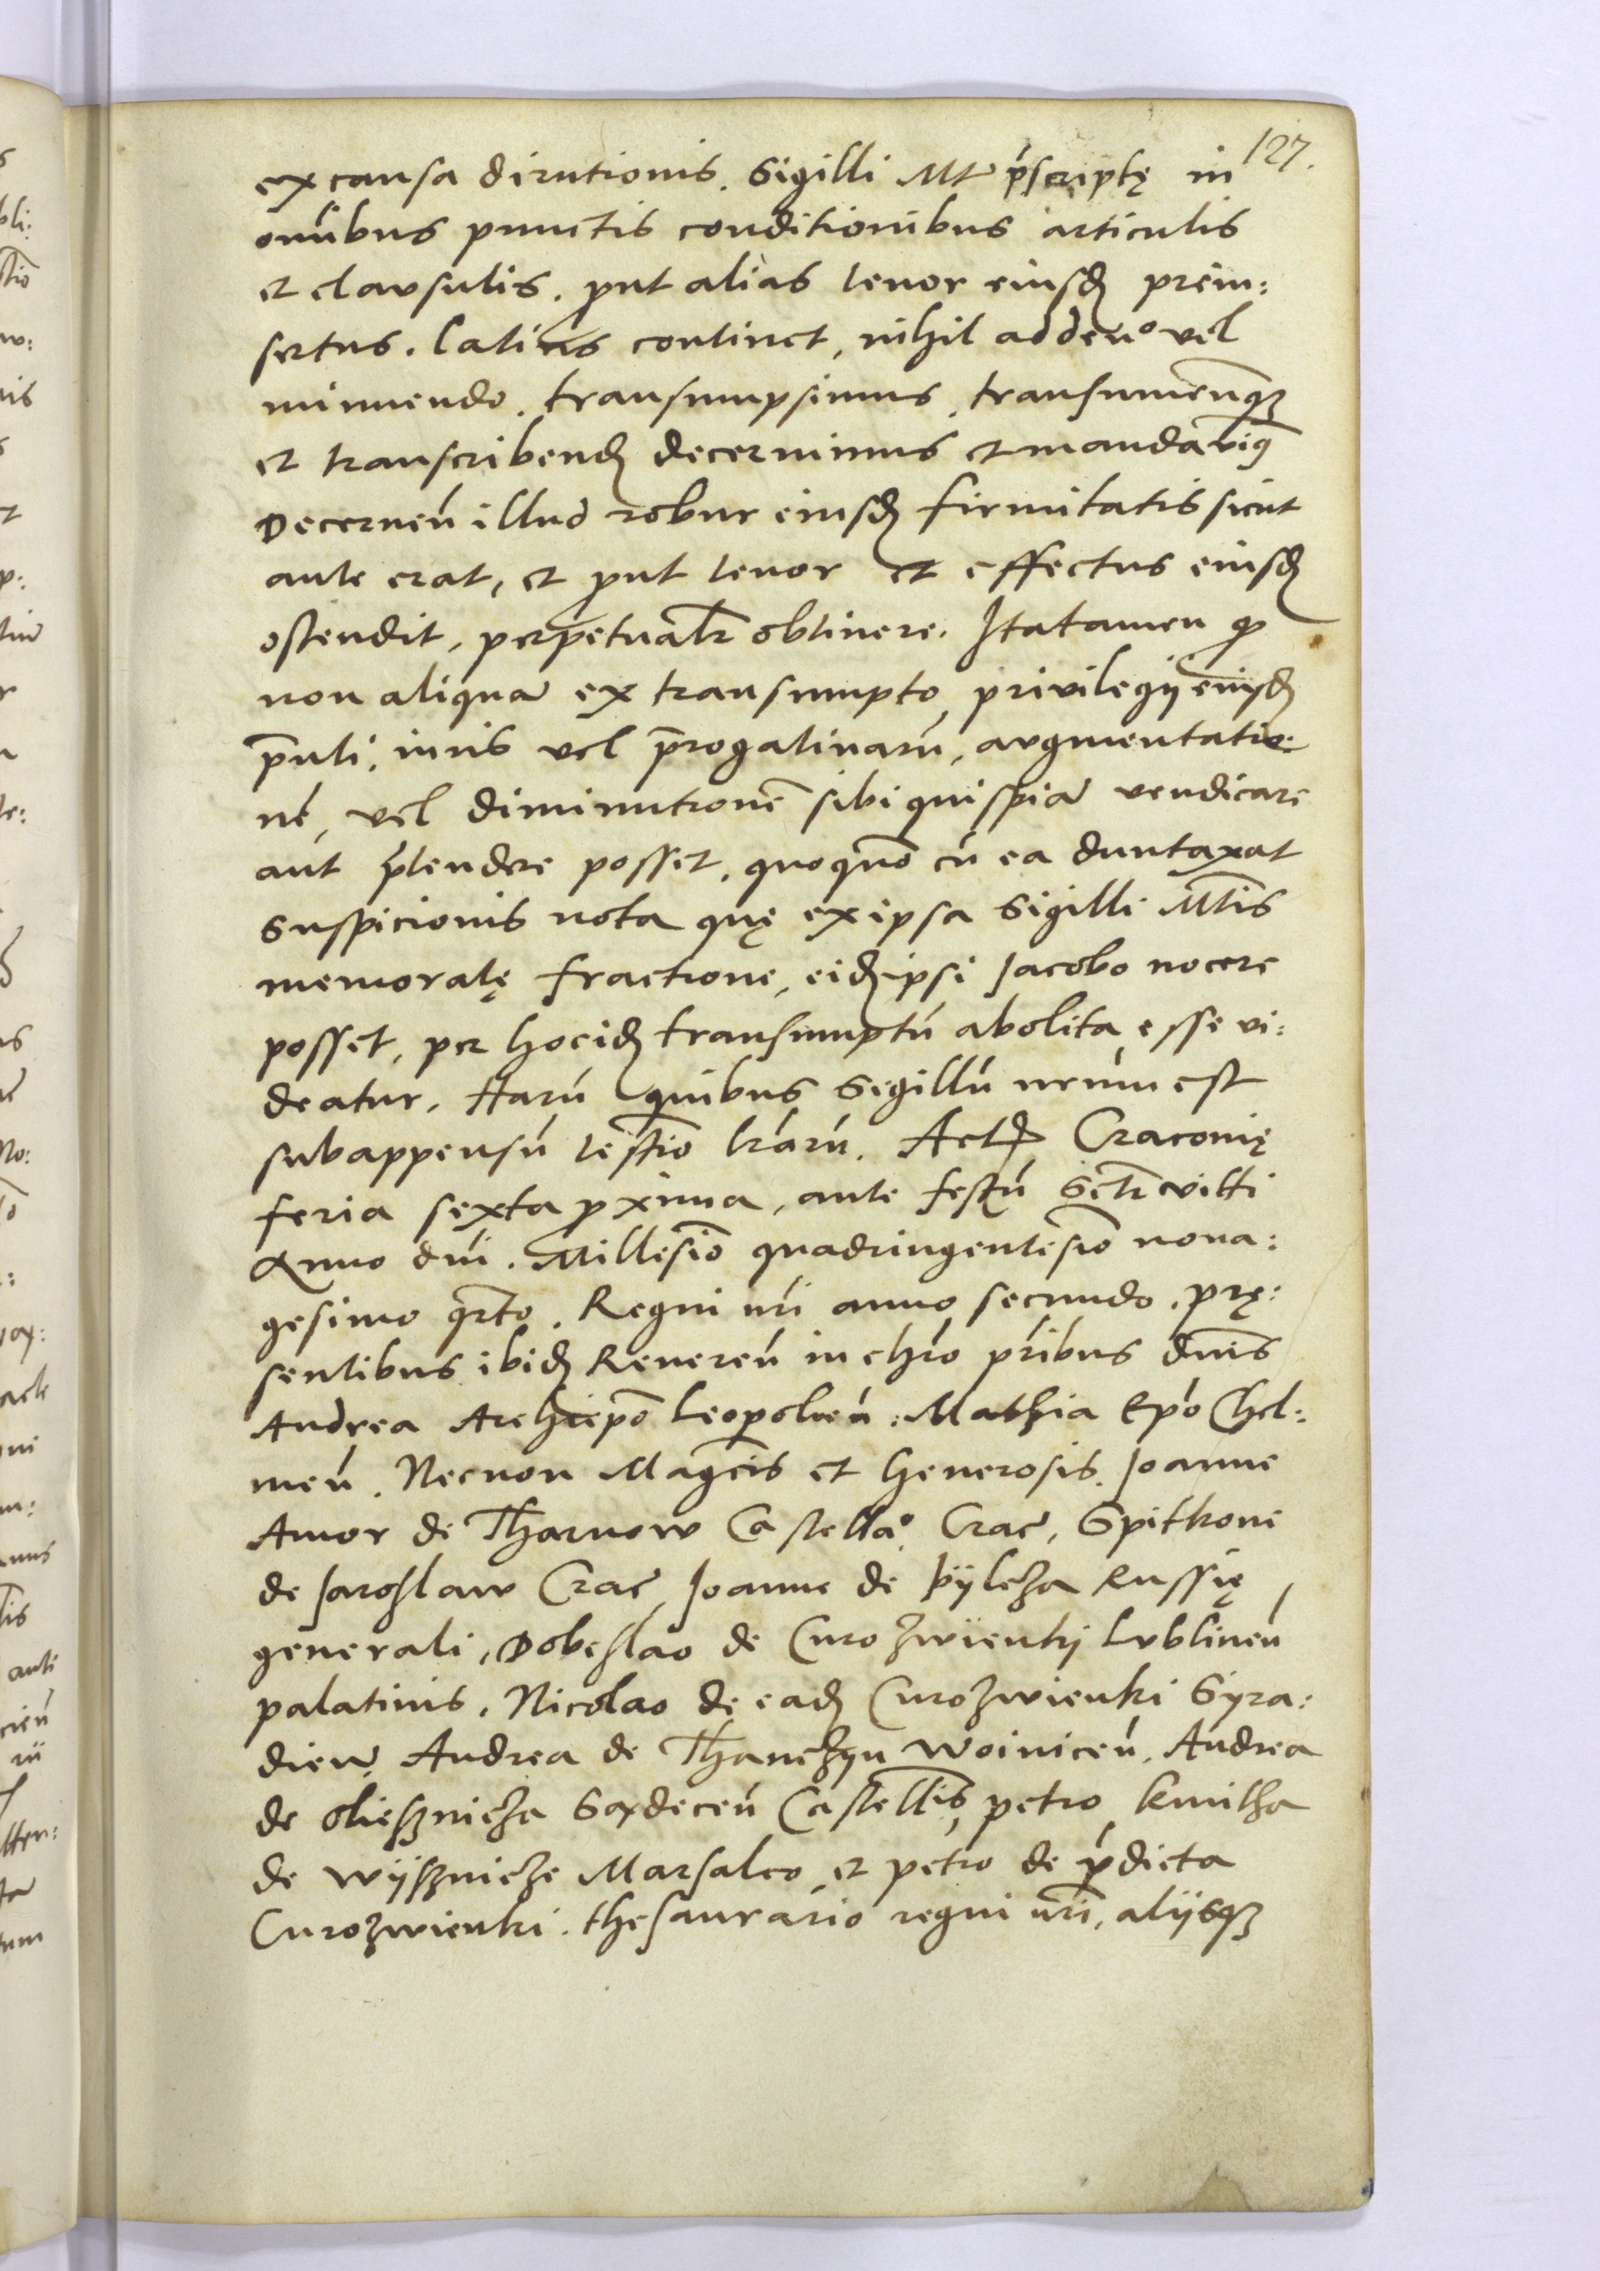 127.
ex causa dirutionis. Sigilli Mt p̄scriptę in
om̄ibus punctis conditionibus articulis
et clausulis. ꝓut alias tenor eiusꝺ prein:
sertus. latius continet, nihil adden̄o vel
minuendo. transumpsimus. transumen̄qꝫ
et transcribenꝺ decernimus et mandauimꝰ
Decernen̄ illud robur eiusꝺ firmitatis sicut
ante erat, et ꝓut tenor et effectus eiusꝺ
ostendit, perpetualr̄ obtinere. Ita tamen ꝙ
non aliqua ex transumpto privilegij eiusꝺ
p̄nti, iuris vel p̄rogatinarū, augmentatio:
nē, vel diminutionē sibi quispiā vendicare
aut p̄tendere posset. quoquō cū ea duntaxat
suspicionis nota quę ex ipsa Sigilli Mt̄is
memoratę fractione, eiꝺ ipsi Jacobo nocere
posset, per hoc iꝺ transumptū abolita esse vi:
deatur. Harū quibus Sigillū nr̄um est
subappensū testīo lr̄arū. Actꝫ Cracouię
feria sexta ꝓxima, ante festū Sct̄i viti
Anno dn̄i. Millesīo quadringentesīo nona:
gesimo qr̄to. Regni nr̄i anno secundo. prę:
sentibus ibiꝺ Reueren̄ in chr̄o pr̄ibus dn̄is
Andrea Archiepō Leopolien̄: Mathia Ep̄o Chel:
men̄. Necnon Magcīs et Generosis. Joanne
Amor de Tharnow Castellāo Crac̄, Spitkone
de Jaroslaw Crac̄ Joanne de Pÿlcza Russię
generali, Dobeslao de Curozwienkj Lublinen̄
palatinis. Nicolao de eaꝺ Curozwienki Syra:
dien̄, Andrea de Thanczyn Woinicen̄. Andrea
de Oliesznicza Saxdecen̄ Castellīs, petro Kmitha
de Wÿszniche Marsalco, et petro de p̄dicta
Curozwienki. thesaurario regni nr̄i, alijsqꝫ